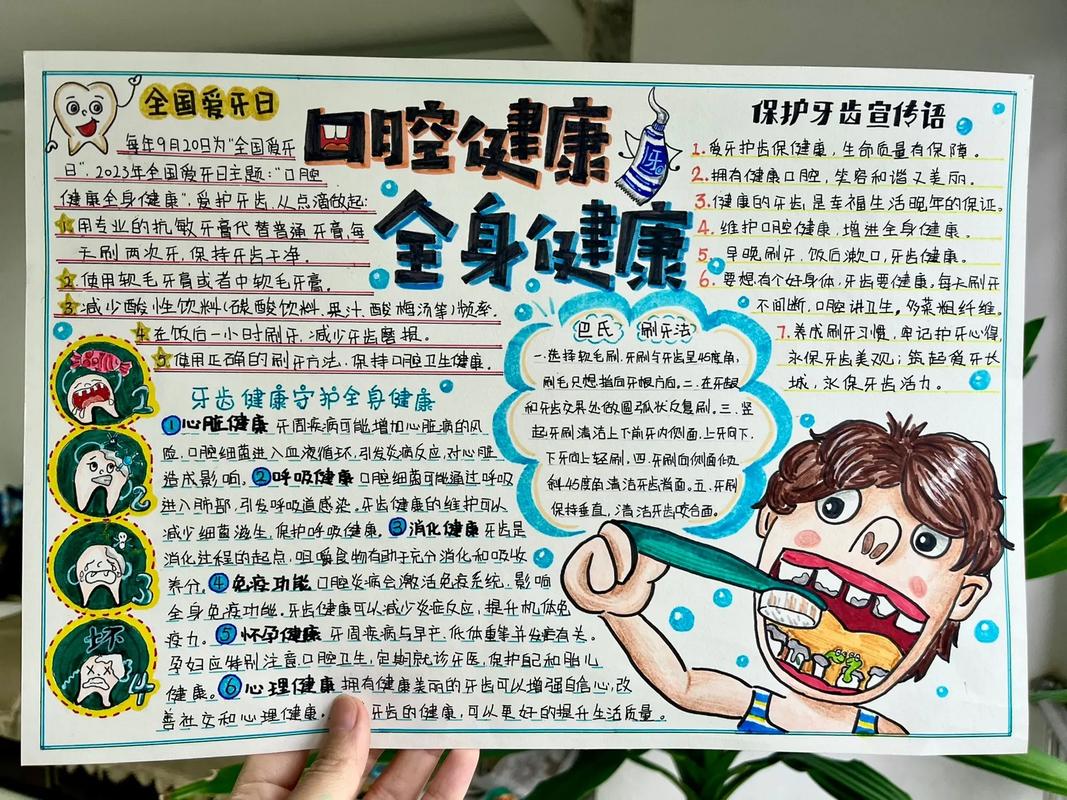 全国爱牙日
每年9月20日为"全国爱牙
日",2023年全国爱牙日主题:"口腔
健康全身健康",爱护牙齿,从点滴做起:
1.用专业的抗敏牙膏代替普通牙膏,每
天刷两次牙,保持牙齿干净。
2.使用软毛牙膏或者中软毛牙膏。
3.减少酸性饮料(碳酸饮料、果汁、酸梅汤等)频率.
4.在饭后一小时刷牙,减少牙齿磨损。
5.使用正确的刷牙方法,保持口腔卫生健康.
口腔健康
全身健康
牙
保护牙齿宣传语
1.爱牙护齿保健康,生命质量有保障。
2.拥有健康口腔,笑容和谐又美丽。
3.健康的牙齿,是幸福生活晚年的保证。
4.维护口腔健康,增进全身健康。
5.早晚刷牙、饭后漱口,牙齿健康。
6.要想有个好身体,牙齿要健康,每天刷牙
不间断,口腔讲卫生,多菜粗纤维。
7.养成刷牙习惯,牢记护牙心得,
永保牙齿美观;筑起爱牙长
城,永保牙齿活力。
巴氏 刷牙法
一.选择软毛刷,牙刷与牙齿呈45度角,
刷毛尖想指向牙根方向。二.在牙龈
和牙齿交界处做圆弧状反复刷。三.竖
起牙刷清洁上下前牙内侧面,上牙向下,
下牙向上轻刷。四.牙刷向侧面倾
斜45度角清洁牙齿背面。五.牙刷
保持垂直,清洁牙齿咬合面。
1
2
3
坏
4
牙齿健康守护全身健康
①心脏健康 牙周疾病可能增加心脏病的风
险,口腔细菌进入血液循环,引发炎病反应,对心脏
造成影响。②呼吸健康 口腔细菌可能通过呼吸
进入肺部,引发呼吸道感染。牙齿健康的维护可以
减少细菌滋生,保护呼吸健康。③消化健康 牙齿是
消化过程的起点,咀嚼食物有助于充分消化和吸收
养分。④免疫功能 口腔炎病会激活免疫系统,影响
全身免疫功能。牙齿健康可以减少炎症反应,提升机体免
疫力。⑤怀孕健康 牙周疾病与早产、低体重等并发症有关。
孕妇应特别注意口腔卫生,定期就诊牙医,保护自己和胎儿
健康。⑥心理健康 拥有健康美丽的牙齿可以增强自信心,改
善社交和心理健康,牙齿的健康,可以更好的提升生活质量。